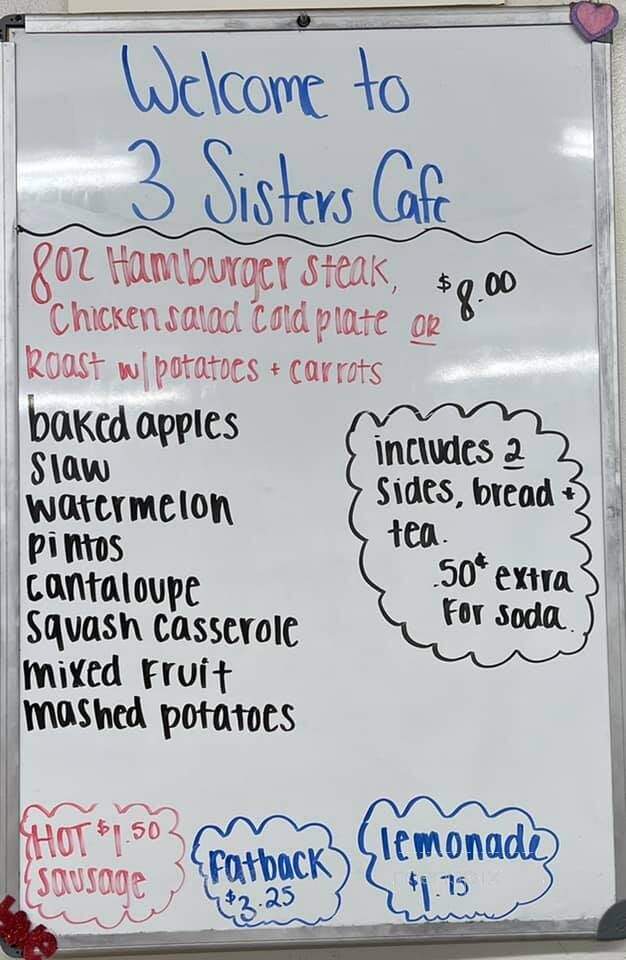 Welcome to
3 Sisters Cafe
8oz Hamburger steak,
$8.00
Chicken salad cold plate OR
Roast w/potatoes + carrots
baked apples
slaw
watermelon
pintos
cantaloupe
squash casserole
mixed fruit
mashed potatoes
includes 2
sides, bread +
tea.
.50¢ extra
for soda.
Hot $1.50
sausage
Fatback
$3.25
lemonade
$1.75